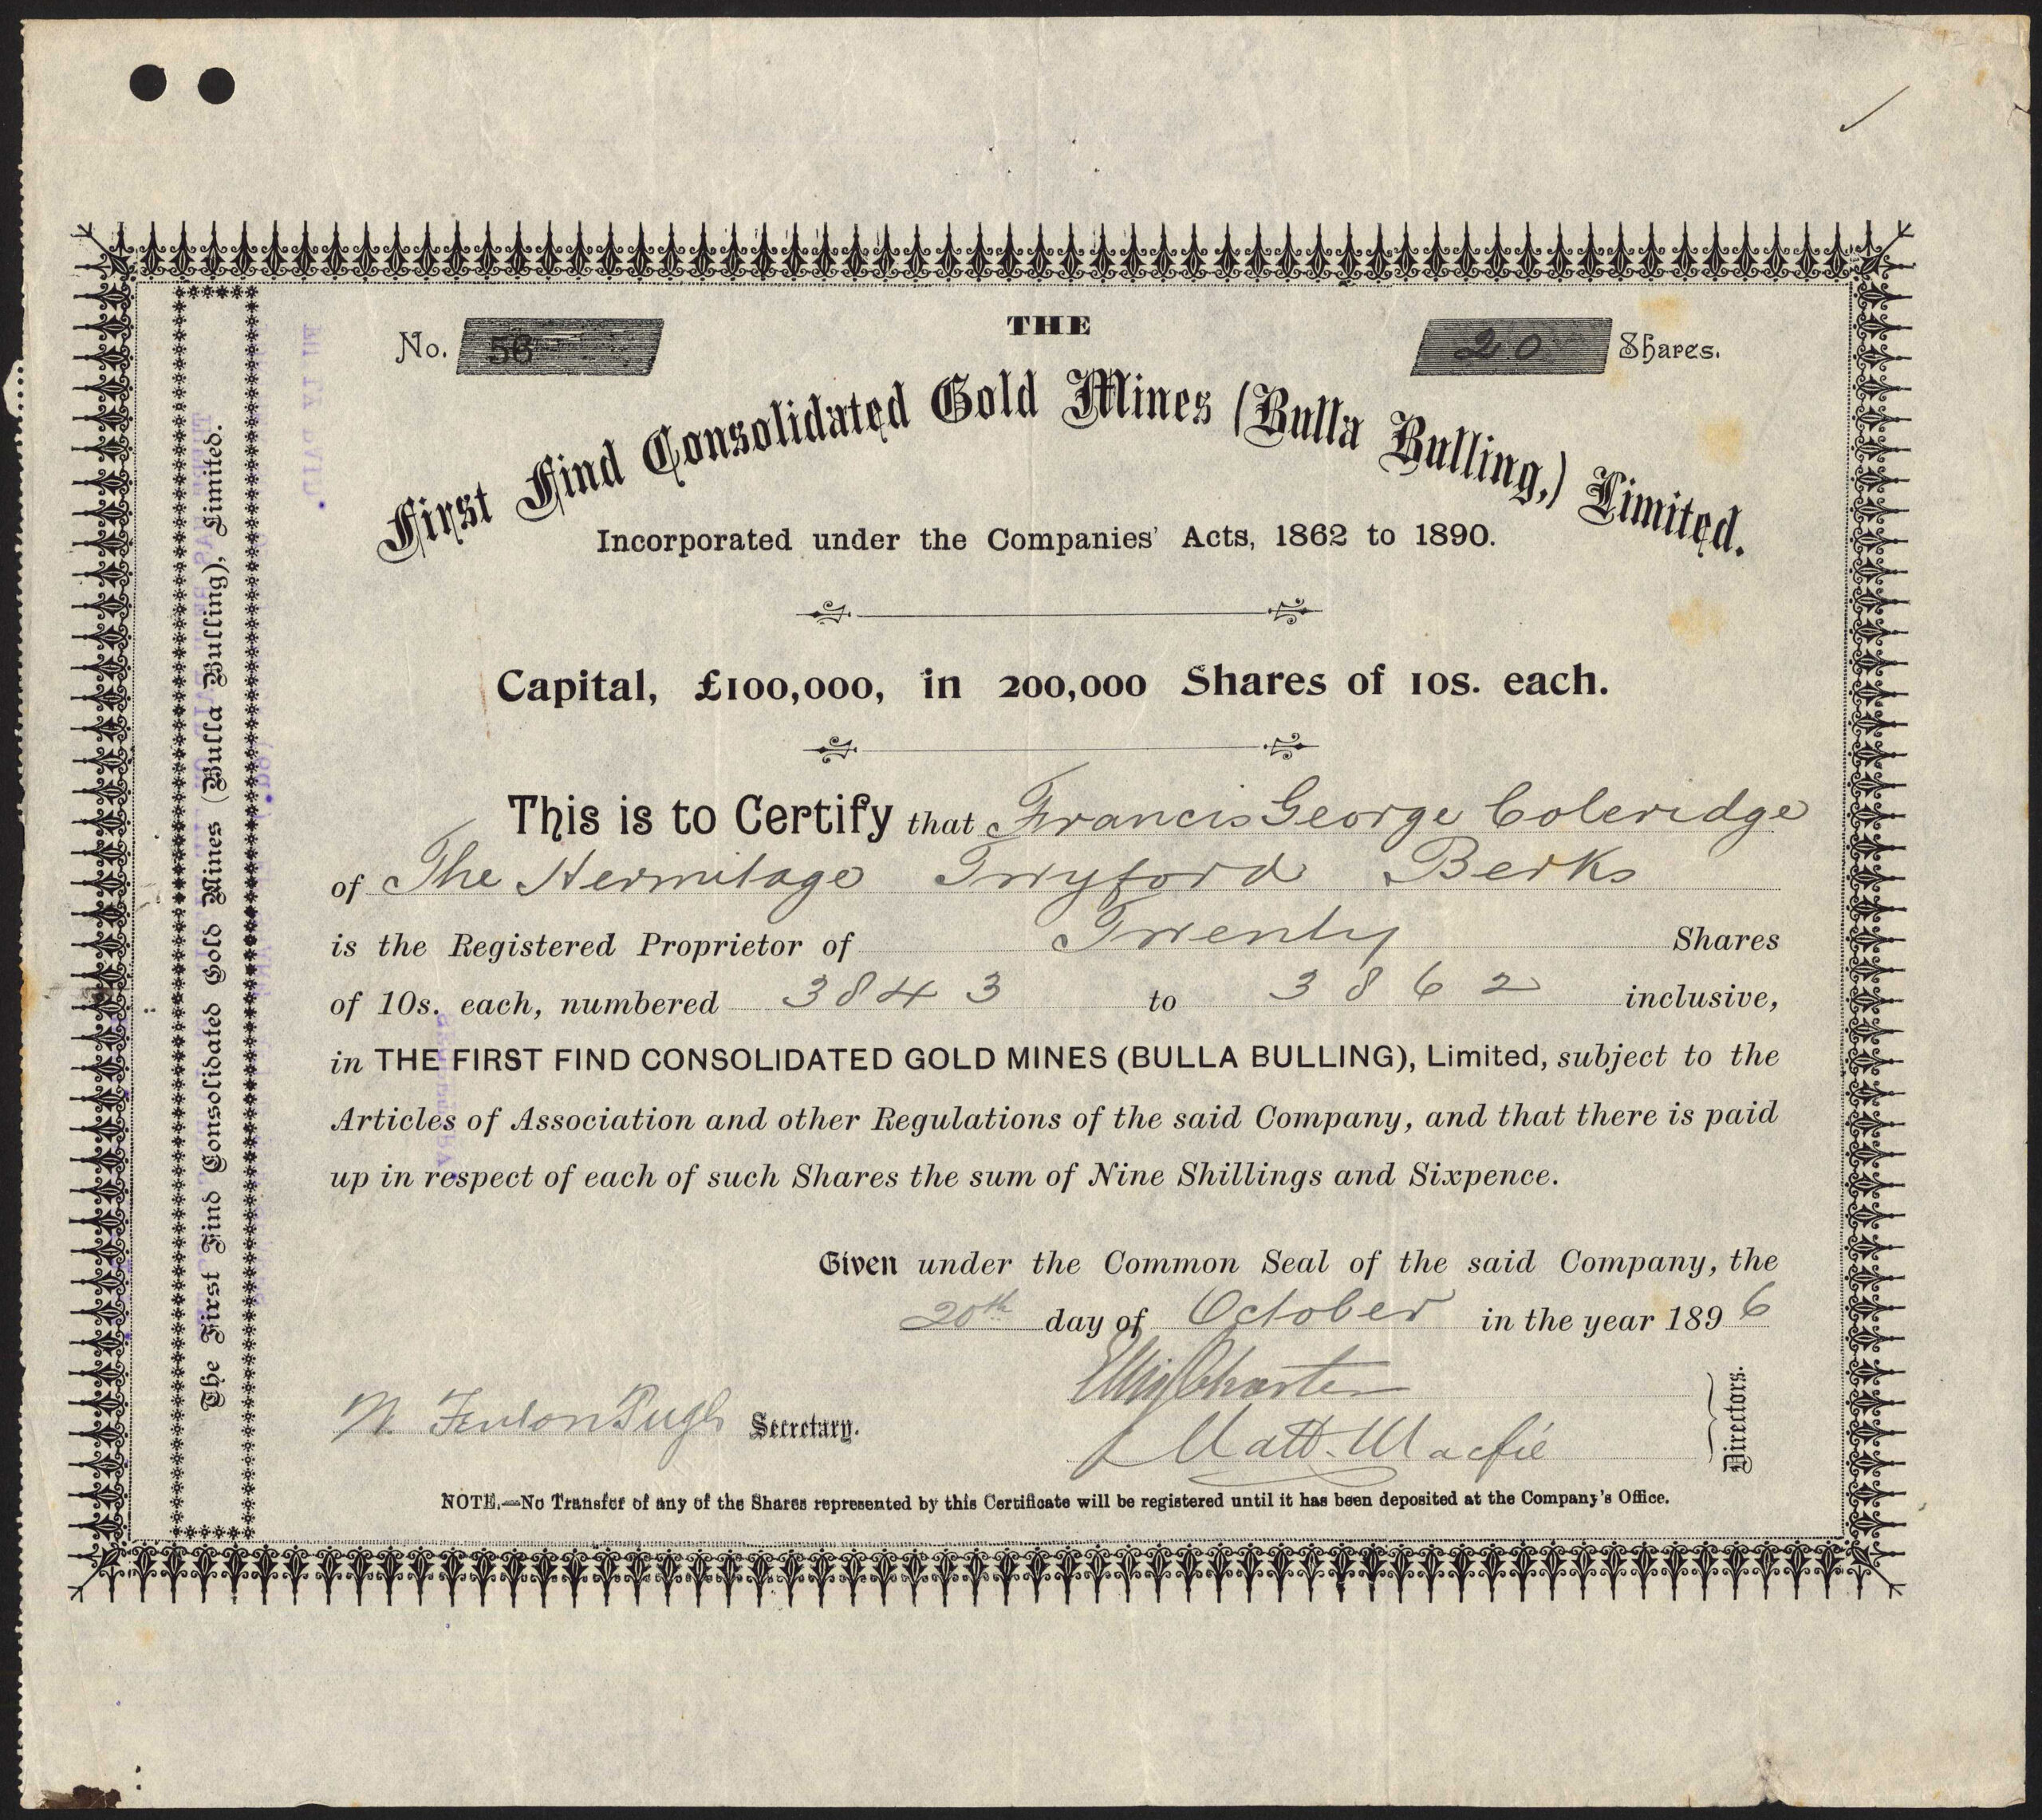 THE
No. 56 20 Shares.
First Find Consolidated Gold Mines (Bulla Bulling,) Limited.
Incorporated under the Companies' Acts, 1862 to 1890.
Capital, £100,000, in 200,000 Shares of 10s. each.
This is to Certify that Francis George Coleridge
of The Hermitage Twyford Berks
is the Registered Proprietor of Twenty Shares
of 10s. each, numbered 3843 to 3862 inclusive,
in THE FIRST FIND CONSOLIDATED GOLD MINES (BULLA BULLING), Limited, subject to the
Articles of Association and other Regulations of the said Company, and that there is paid
up in respect of each of such Shares the sum of Nine Shillings and Sixpence.
Given under the Common Seal of the said Company, the
20th day of October in the year 1896
Ellis Charter
Matt. Macfie
Directors.
Fenton Pugh Secretary.
NOTE.—No Transfer of any of the Shares represented by this Certificate will be registered until it has been deposited at the Company's Office.
The First Find Consolidated Gold Mines (Bulla Bulling), Limited.